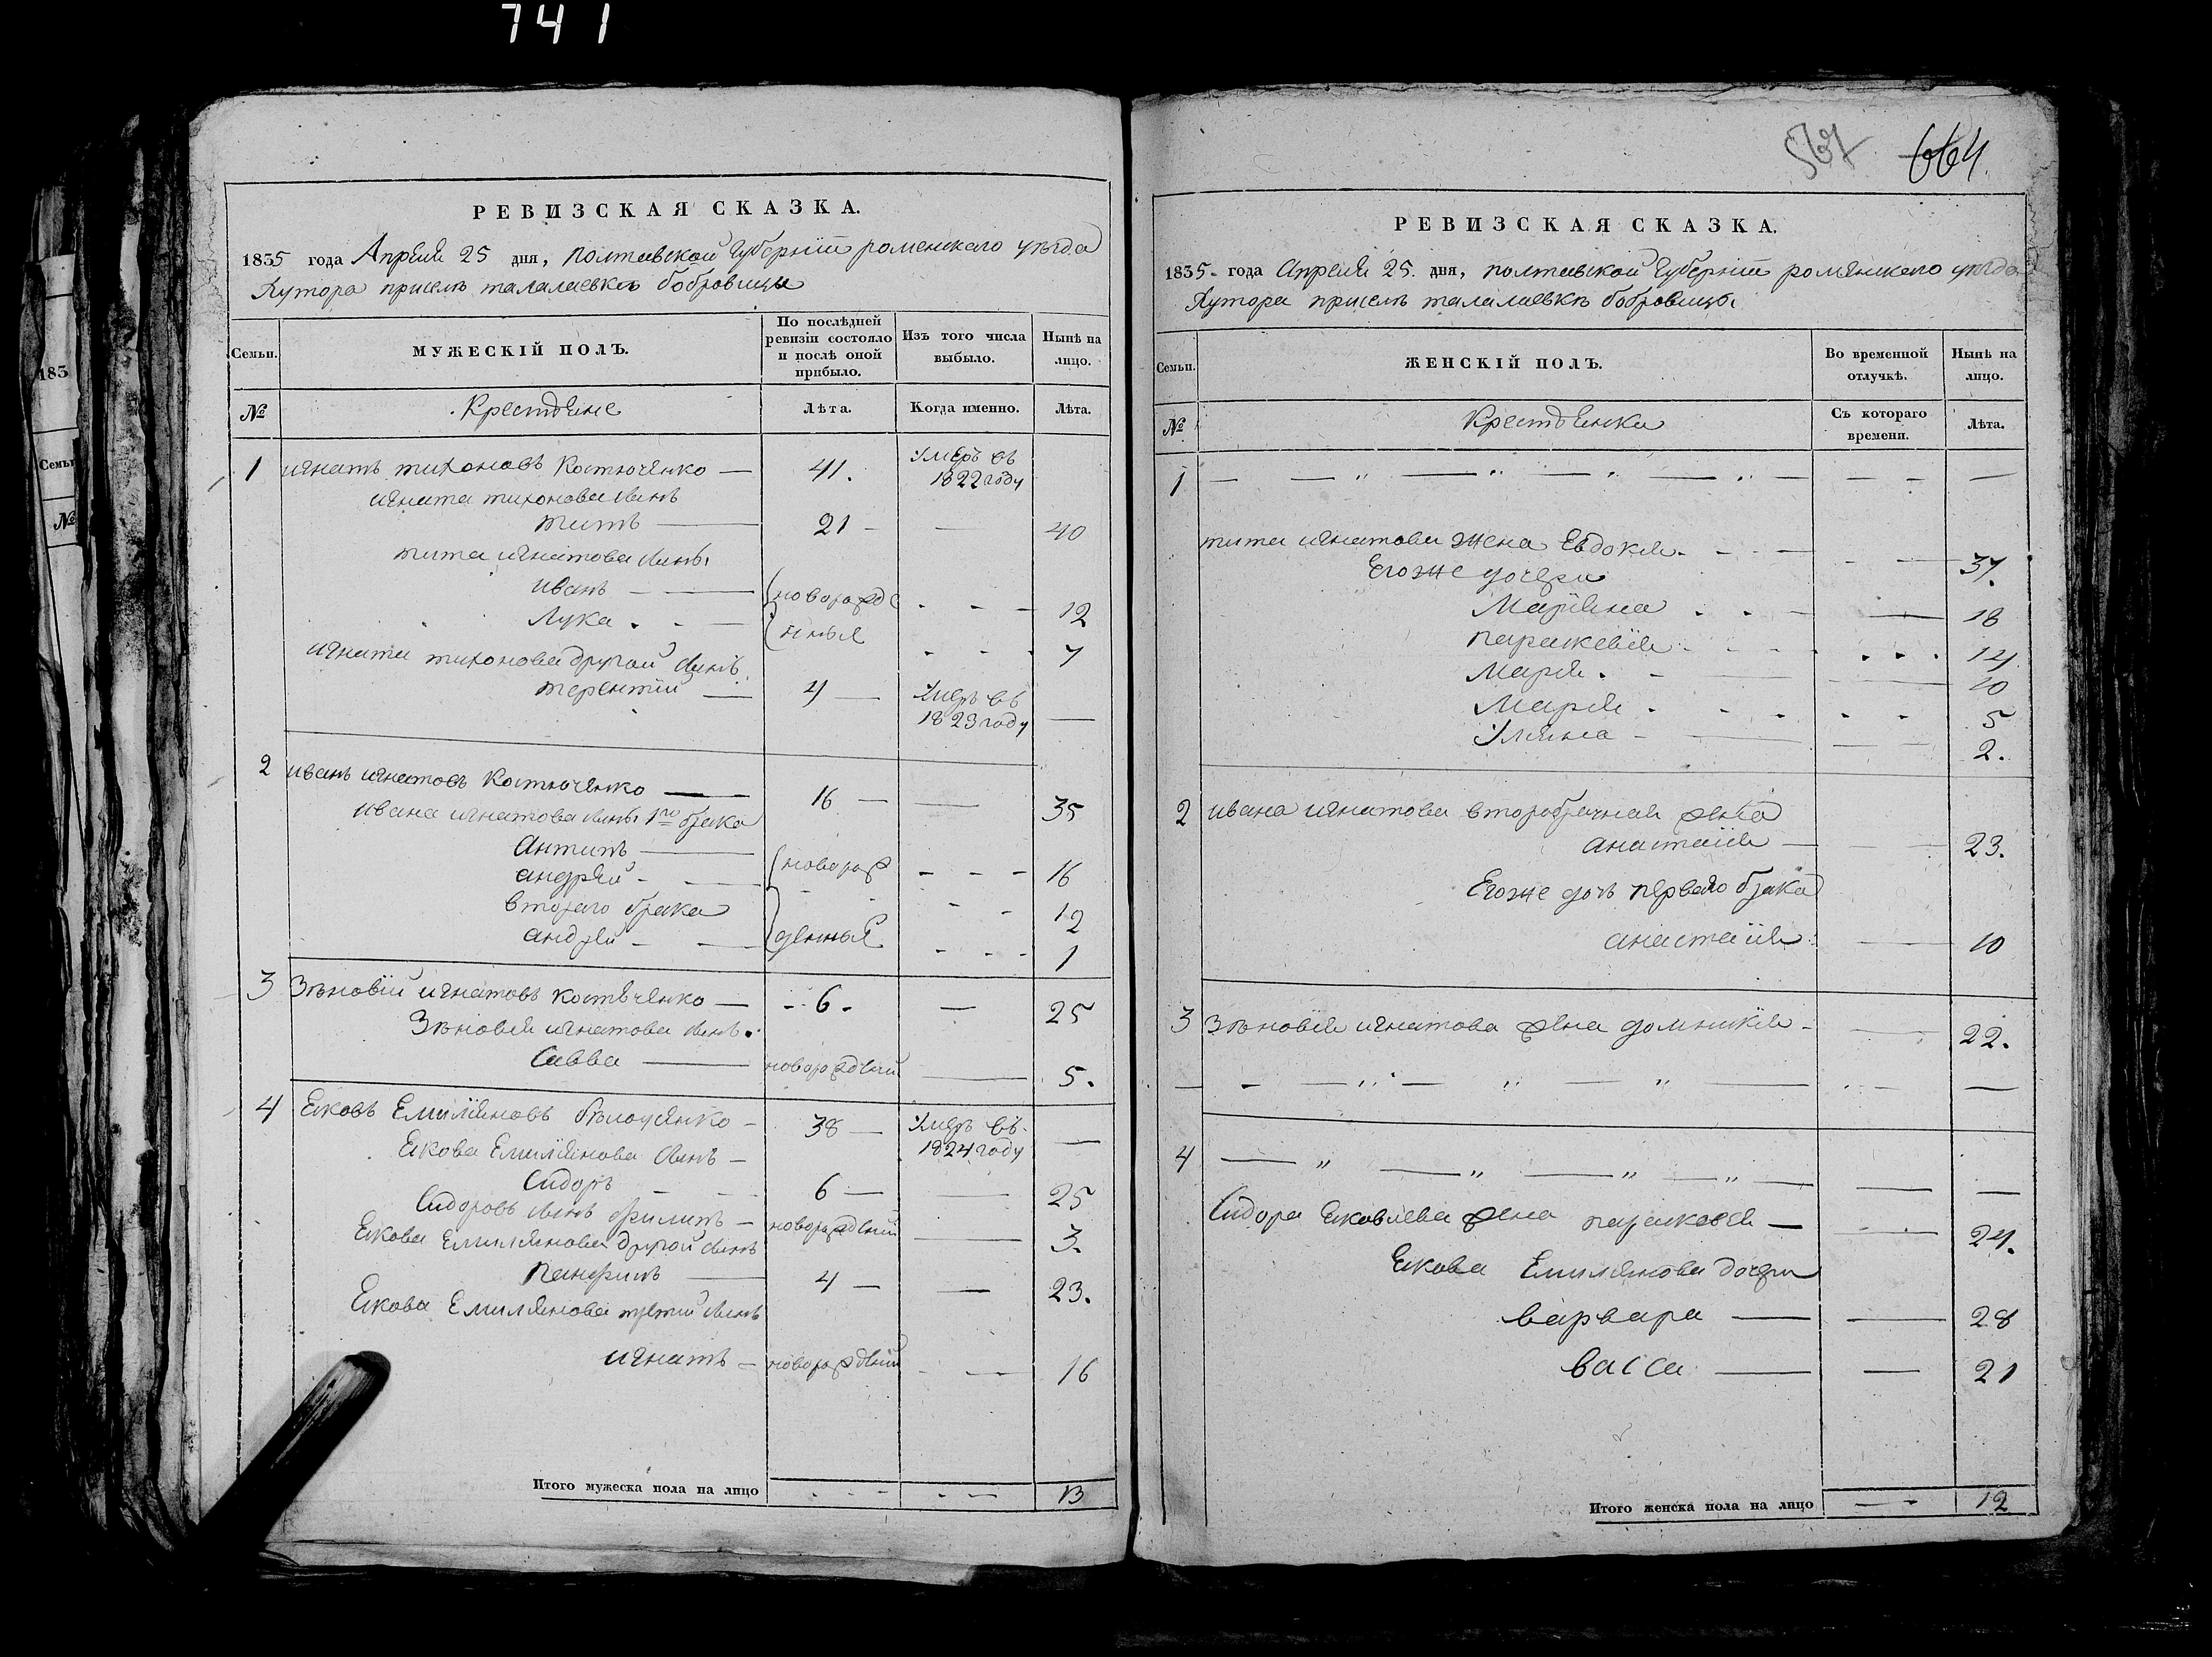 741
183
Семьи
№
РЕВИЗСКАЯ СКАЗКА.
1835 года Апреля 25 дня, полтавской Губернiи роменского уезда
Хутора приселе талалаевке бобровицы
Семьи. МУЖЕСКIЙ ПОЛЪ. По послѣдней ревизiи состояло и послѣ оной прибыло. Изъ того числа выбыло. Нынѣ на лицо.
№ Крестьяне Лѣта. Когда именно. Лѣта.
1 игнатъ тихоновъ Костюченко — 41. умеръ въ 1822 году
игната тихонова сынъ
титъ — 21 — — 40
тита игнатова сыны
иванъ — новорожде 12
Лука — нныя 7
игната тихонова другой сынъ
терентий — 4 — умеръ въ 1823 году —
2 иванъ игнатовъ Костюченко — 16 — — 35
ивана игнатова сыны 1го брака
Антипъ — новорож 16
андрей — 12
второго брака
андрей — денныя 1
3 Зѣновiй игнатовъ костюченко — 6. — 25
Зѣновия игнатова сынъ.
Савва — новорожденый — 5.
4 Яковъ Емилiяновъ — 38 — умеръ въ 1824 году —
Якова Емилiянова сынъ —
Сидоръ 6 — — 25
Сидоровъ сынъ филипъ — новорожденый — 3.
Якова Емилянова другой сынъ
панфилъ — 4 — — 23.
Якова Емилянова третий сынъ
игнатъ — новорожденый — 16
Итого мужеска пола на лицо 13
567 664
РЕВИЗСКАЯ СКАЗКА.
1835. года Апреля 25. дня, полтавской Губернiи роменского уезда
Хутора приселе талалаевке бобровицы
Семьи. ЖЕНСКIЙ ПОЛЪ. Во временной отлучкѣ. Нынѣ на лицо.
№ Крестьянки Съ котораго времени. Лѣта.
1 — — " — " — " — — — —
тита игнатова жена Евдокия — — 37.
Егоже дочери
Марiяна — — 18
парасковiя 14
Мария — — 10
Мария 5
Уляна — — 2.
2 ивана игнатова второбрачная жена
анастасiя — — 23.
Егоже дочь перваго брака
анастасiя — 10
3 Зѣновiя игнатова жена домникiя — — 22.
— — — " — " — " — —
4 — " — " — " — " — — —
Сидора Яковлева жена парасковея — — 24.
Якова Емилянова дочери
варвара — — 28
васса — — 21
Итого женска пола на лицо — — 12